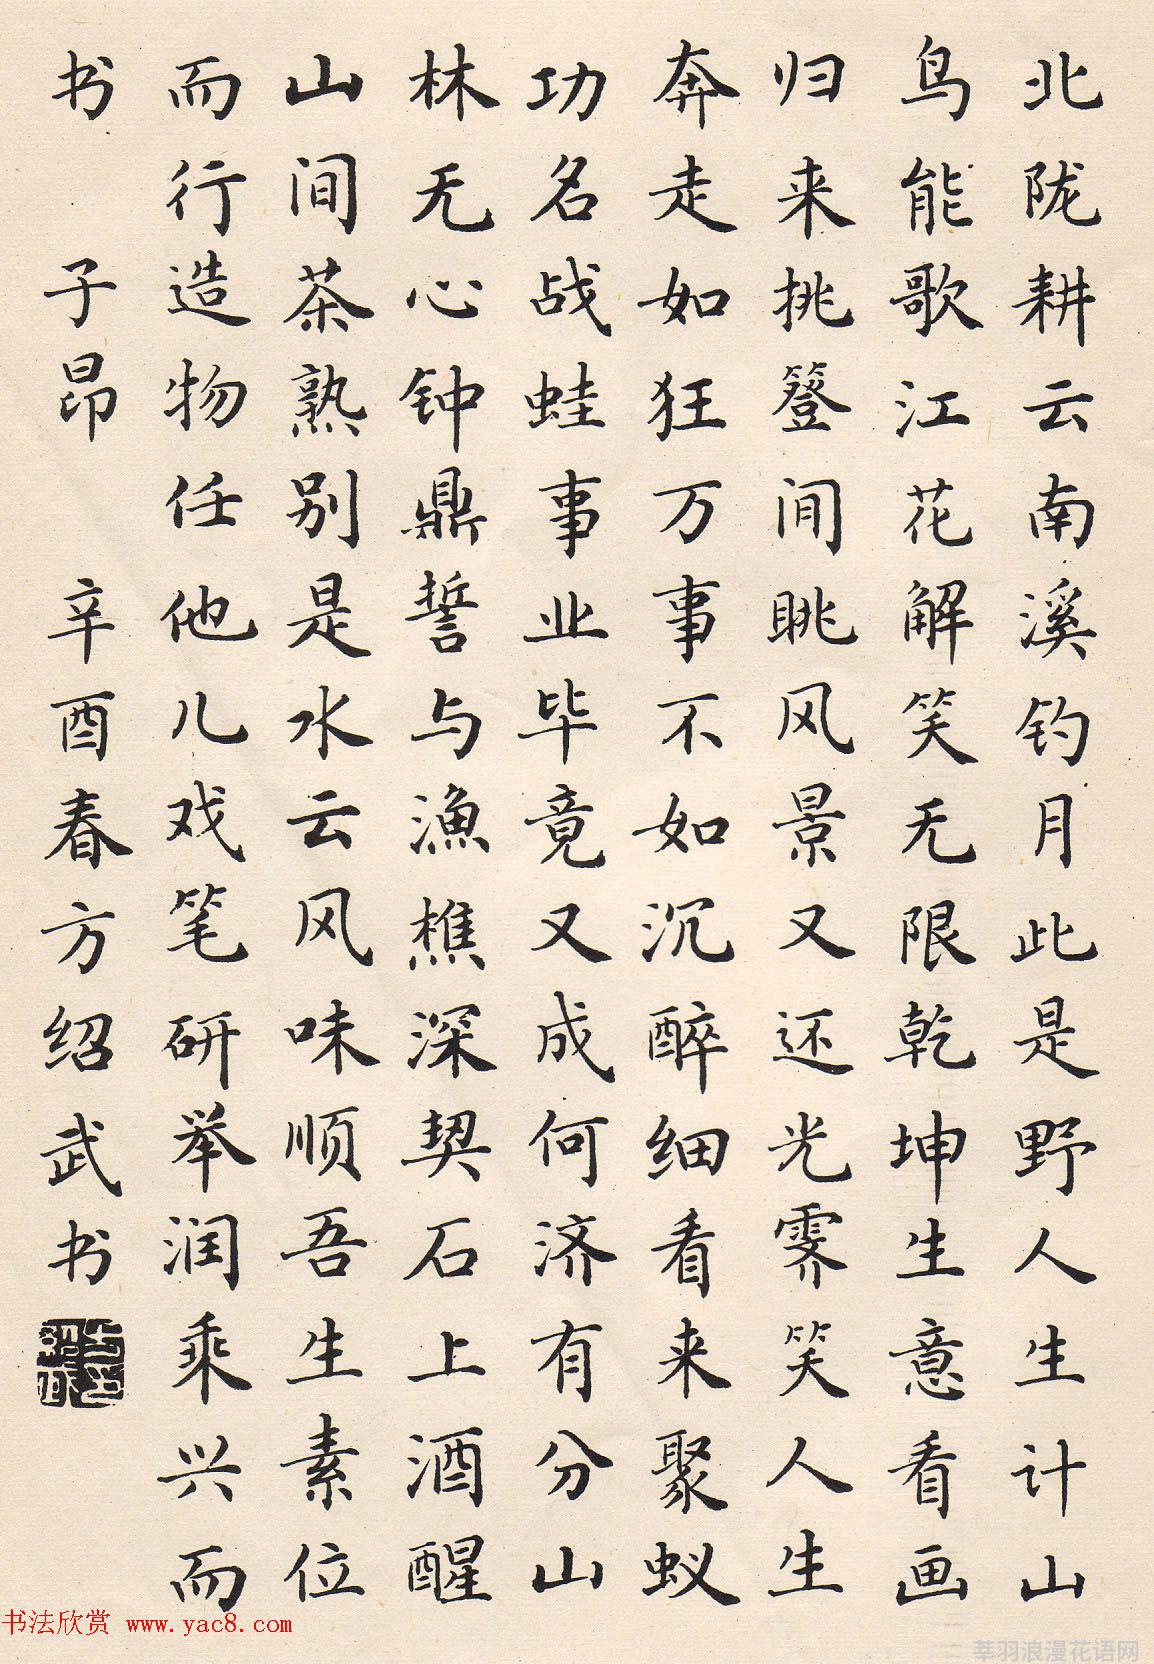 北陇耕云南溪钓月此是野人生计山
鸟能歌江花解笑无限乾坤生意看画
归来挑簦闲眺风景又还光霁笑人生
奔走如狂万事不如沉醉细看来聚蚁
功名战蛙事业毕竟又成何济有分山
林无心钟鼎誓与渔樵深契石上酒醒
山间茶熟别是水云风味顺吾生素位
而行造物任他儿戏笔研举润乘兴而
书 子昂 辛酉春方绍武书
书法欣赏 www.yac8.com
莘羽浪漫花语网